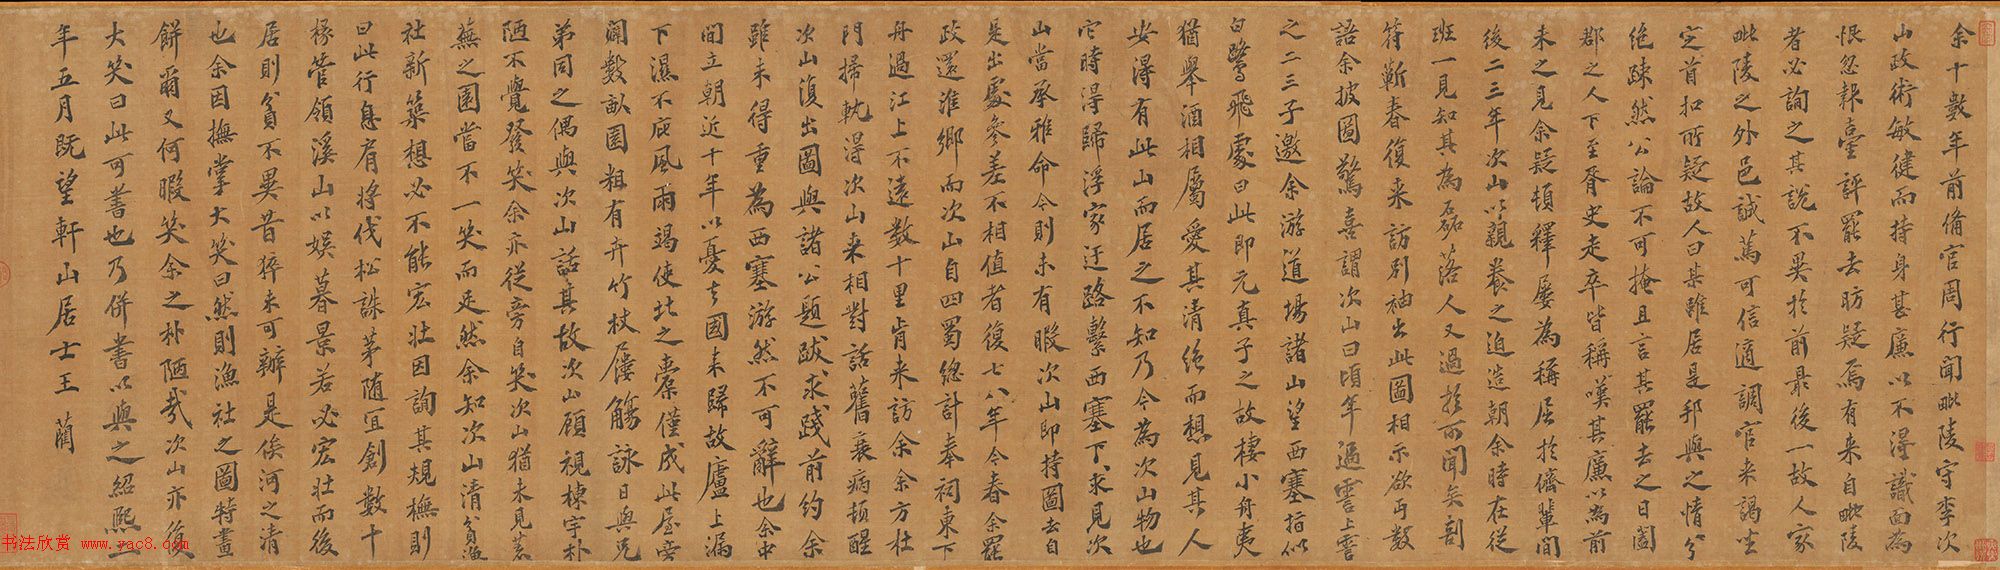 余十數年前備官周行聞毗陵守李次
山政術敏健而持身甚廉以不得識面為
恨忽報臺評罷去昉疑焉有来自毗陵
者必詢之其說不異於前最後一故人家
毗陵之外邑誠篤可信適調官来謁坐
定首扣所疑故人曰某雖居是邦與之情分
絶踈然公論不可掩且言其罷去之日闔
郡之人下至胥史走卒皆稱嘆其廉以為前
未之見余疑頓釋屢為稱屈於儕輩間
後二三年次山以親養之迫造朝余時在從
班一見知其為磊落人又過於所聞矣剖
符蘄春復来訪別袖出此圖相示欲丐數
語余披圖驚喜謂次山曰頃年過霅上霅
之二三子邀余游道場諸山望西塞指似
白鷺飛處曰此即元真子之故棲小舟夷
猶舉酒相屬愛其清絶而想見其人
安得有此山而居之不知乃今為次山物也
它時得歸浮家迂路繫西塞下求見次
山當承雅命今則未有暇次山即持圖去自
是出處參差不相值者復七八年今春余罷
政還淮鄉而次山自四蜀總計奉祠東下
舟過江上不遠數十里肯来訪余余方杜
門掃軌得次山来相對話舊衰病頓醒
次山復出圖與諸公題跋求踐前約余
雖未得重為西塞游然不可辭也余中
間立朝近十年以憂去國来歸故廬上漏
下濕不庇風雨竭使北之橐僅成此屋旁
闢數畝園粗有卉竹杖屨觴詠日與兄
弟同之偶與次山話其故次山顧視棟宇朴
陋不覺發笑余亦從旁自笑次山猶未見荒
蕪之園當不一笑而足然余知次山清貧漁
社新築想必不能宏壯因詢其規橅則
曰此行息肩將伐松誅茅随宜創數十
椽管領溪山以娱暮景若必宏壯而後
居則貧不異昔猝未可辦是俟河之清
也余因撫掌大笑曰然則漁社之圖特畫
餅爾又何暇笑余之朴陋哉次山亦復
大笑曰此可書也乃併書以與之紹熙二
年五月既望軒山居士王藺
书法欣赏 www.yac8.com